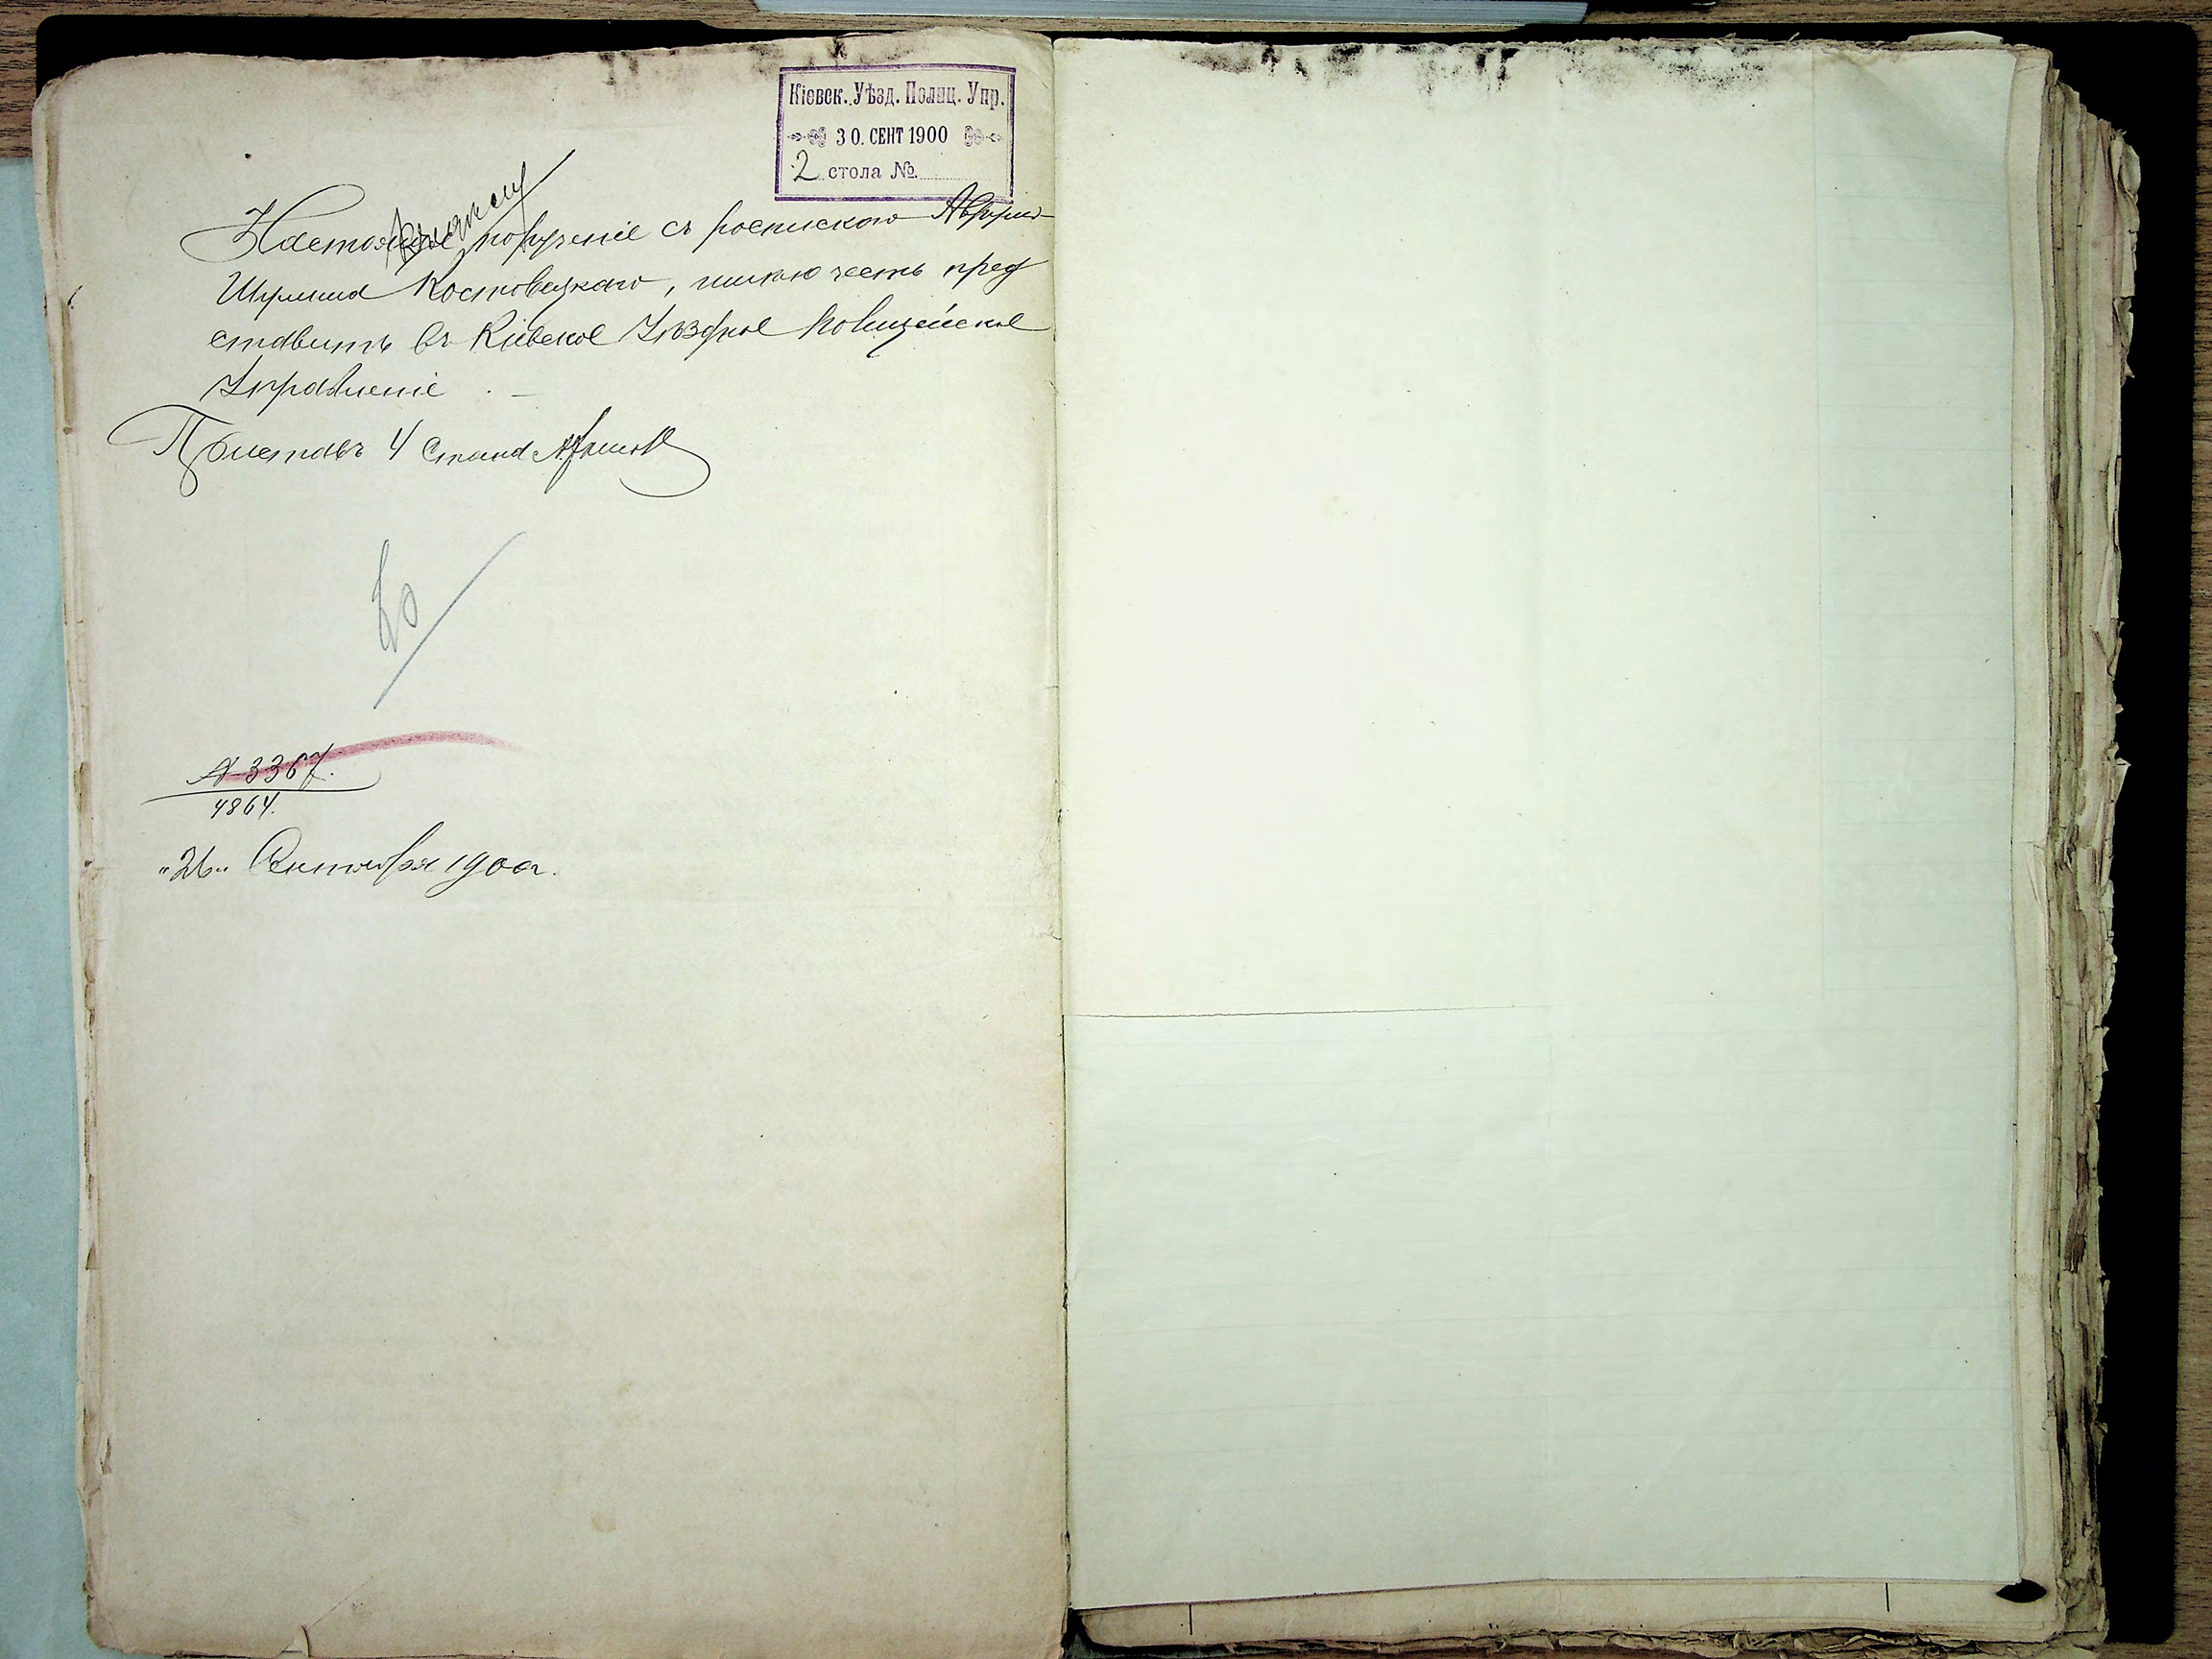 Кіевск. Уѣзд. Полиц. Упр.
30. СЕНТ 1900
2 стола №
Настоящее порученіе съ роспискою
Шулима Костовецкаго, имѣю честь пред
ставить въ Кіевское Уѣздное Полицейское
Управленіе. –
Приставъ 4 Стана
№ 3367.
4864.
"26" Сентября 1900 г.